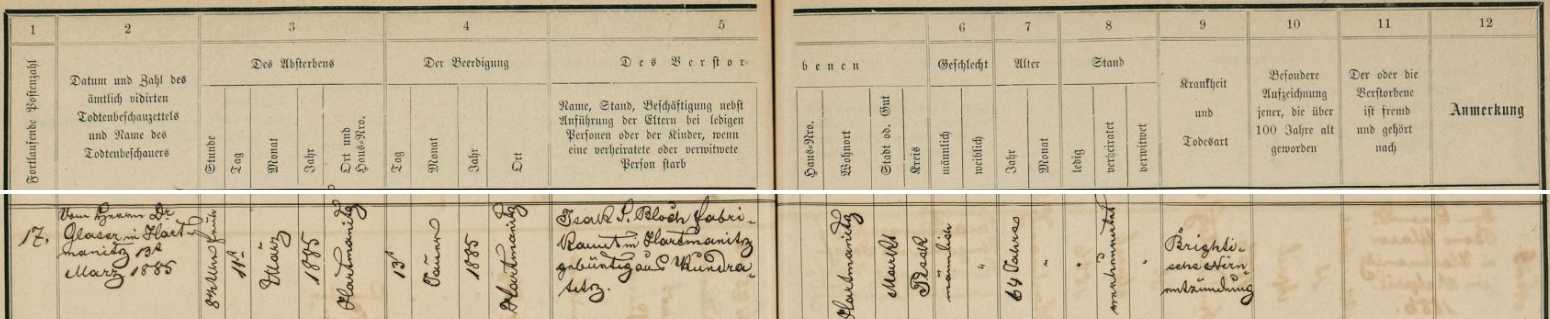 1 2 3 4 5 6 7 8 9 10 11 12
Fortlaufende Postenzahl
Datum und Zahl des
ämtlich vidirten
Todtenbeschauzettels
und Name des
Todtenbeschauers
Des Absterbens
Stunde
Tag
Monat
Jahr
Ort und
Haus-Nro.
Der Beerdigung
Tag
Monat
Jahr
Ort
Des Verstor-
benen
Name, Stand, Beschäftigung nebst
Anführung der Eltern bei ledigen
Personen oder der Kinder, wenn
eine verheiratete oder verwitwete
Person starb
Haus-Nro.
Wohnort
Stadt od. Gut
Kreis
Geschlecht
männlich
weiblich
Alter
Jahr
Monat
Stand
ledig
verheiratet
verwitwet
Krankheit
und
Todesart
Besondere
Aufzeichnung
jener, die über
100 Jahre alt
geworden
Der oder die
Verstorbene
ist fremd
und gehört
nach
Anmerkung
17.
Vom Herrn Dr
Glaser in Hart-
manitz 13t
März 1885
8 Uhr Früh
11t
März
1885
Hartmanitz
13t
1885
Hartmanitz
Isak S. Bloch Fabri-
kant in Hartmanitz
gebürtig aus Kundra-
titz.
Hartmanitz
Markt
Pisek
männlich
"
64 Jahre
"
"
"
Brighti-
sche Niren-
entzündung